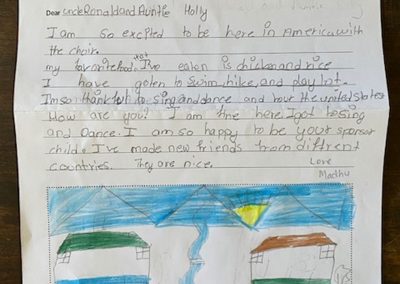 Dear uncle Ronald and Auntie Holly
I am so excpted to be here in America with
the choir.
my favorite food I've eaten is chiken and rice
yet
I have goten to swim, hike, and play lot.
Im so thankful to sing and dance and tour the united states
How are you? I am fine here. I got to sing
and Dance. I am so happy to be your sponsor
child. I've made new friends from diffrent
countries. They are nice.
Love
Madhu